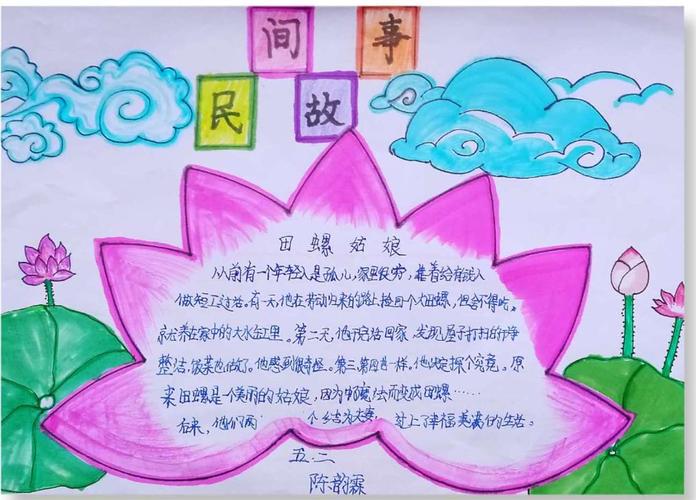 民间故事
田螺姑娘
从前有一个年轻人是孤儿，家里很穷，靠着给有钱人
做短工过活。有一天，他在劳动归来的路上捡回个大田螺，但舍不得吃，
就养在家中的大水缸里。第二天，他干完活回家，发现屋子打扫的干净
整洁，饭菜也做了。他感到很奇怪。第三、第四者一样，他决定探个究竟。原
来田螺是一个美丽的姑娘，因为中魔法而变成田螺……
后来，他们两个结为夫妻 过上了幸福美满的生活。
五·二
陈韵霖